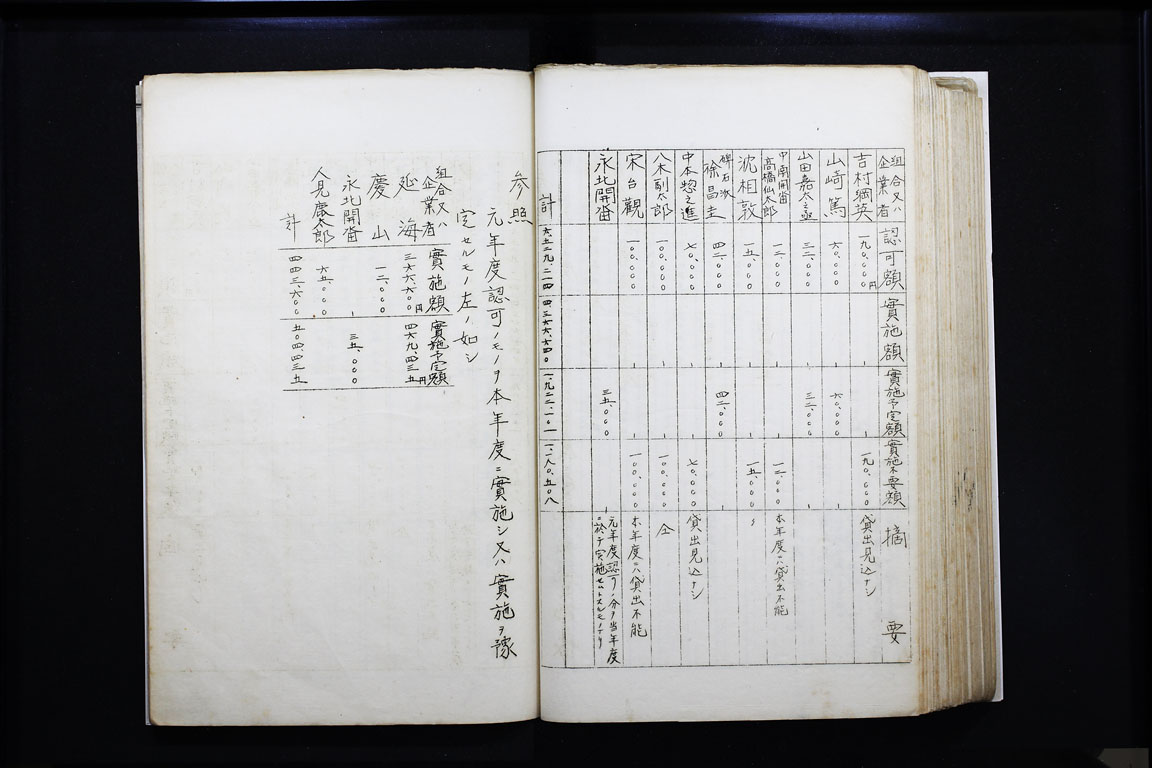 組合又ハ企業者 認可額 實施額 實施予定額 實施不要額 摘要
吉村綱英 一九〇,〇〇〇円 一九〇,〇〇〇 貸出見込ナシ
山﨑篤 六〇,〇〇〇 六〇,〇〇〇
山田嘉太之亟 三二,〇〇〇 三二,〇〇〇
中南開畓 高橋仙太郎 一二,〇〇〇 一二,〇〇〇 本年度ニハ貸出不能
沈相敦 一五,〇〇〇 一五,〇〇〇 〃
碑石派 徐昌圭 四二,〇〇〇 四二,〇〇〇
中本惣之進 七〇,〇〇〇 七〇,〇〇〇 貸出見込ナシ
八木副太郎 一〇〇,〇〇〇 一〇〇,〇〇〇 仝
宋台觀 一〇〇,〇〇〇 一〇〇,〇〇〇 本年度ニハ貸出不能
永北開畓 三五,〇〇〇 元年度認可ノ分ヲ当年度
ニ於テ実施セムトスルモノナリ
計 六五二九,二一四 四三六六,六四〇 一九二二,一〇一 一,一八〇,五〇八
参照
元年度認可ノモノヲ本年度ニ實施シ又ハ實施ヲ豫
定セルモノ左ノ如シ
組合又ハ企業者 實施額 實施予定額
延海 三六六,六〇〇円 四六九,四三五円
慶山 一二,〇〇〇
永北開畓 三五,〇〇〇
人見康太郎 六五,〇〇〇
計 四四三,六〇〇 五〇四,四三五